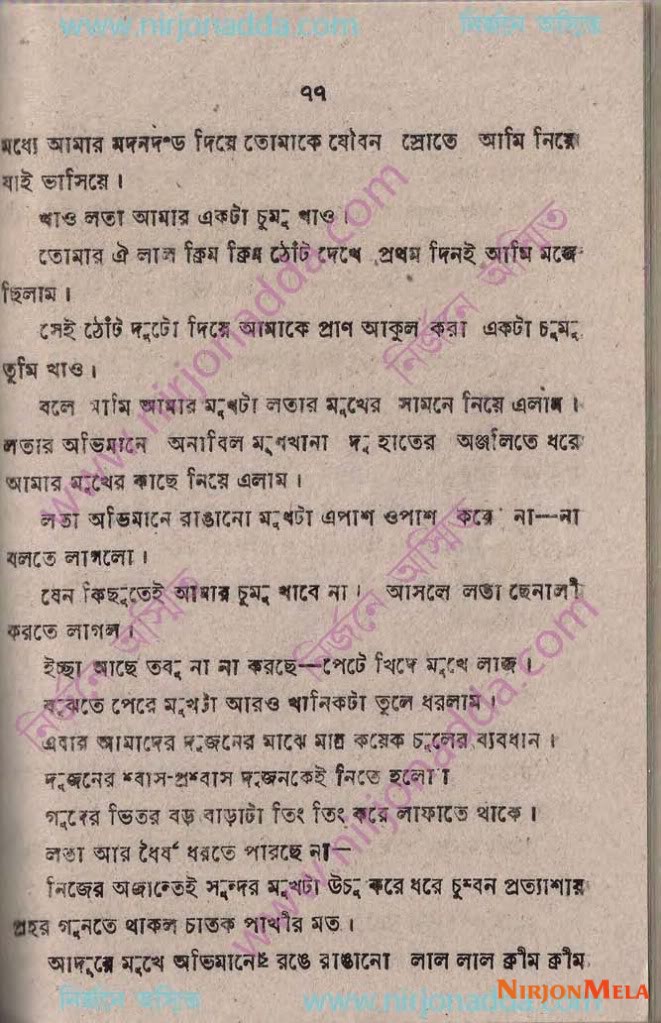 www.nirjonadda.com নির্জনে অস্মিতি
৭৭
মধ্যে আমার মদনদণ্ড দিয়ে তোমাকে যৌবন স্রোতে আমি নিয়ে
যাই ভাসিয়ে।
খাও লতা আমার একটা চুমু খাও।
তোমার ঐ লাল ক্রিম ক্রিম ঠোঁট দেখে প্রথম দিনই আমি মজে
ছিলাম।
সেই ঠোঁট দুটো দিয়ে আমাকে প্রাণ আকুল করা একটা চুমু
তুমি খাও।
বলে আমি আমার মুখটা লতার মুখের সামনে নিয়ে এলাম।
লতার অভিমানে অনাবিল মুখখানা দু হাতের অঞ্জলিতে ধরে
আমার মুখের কাছে নিয়ে এলাম।
লতা অভিমানে রাঙানো মুখটা এপাশ ওপাশ করে না—না
বলতে লাগলো।
যেন কিছুতেই আমার চুমু খাবে না। আসলে লতা ছেনালী
করতে লাগল।
ইচ্ছা আছে তবু না না করছে—পেটে খিদে মুখে লাজ।
বুঝতে পেরে মুখটা আরও খানিকটা তুলে ধরলাম।
এবার আমাদের দুজনের মাঝে মাত্র কয়েক চুলের ব্যবধান।
দুজনের শ্বাস-প্রশ্বাস দুজনকেই নিতে হলো।
গুদের ভিতর বড় বাড়াটা তিং তিং করে লাফাতে থাকে।
লতা আর ধৈর্য ধরতে পারছে না—
নিজের অজান্তেই সুন্দর মুখটা উচু করে ধরে চুম্বন প্রত্যাশায়
প্রহর গুনতে থাকল চাতক পাখীর মত।
আদুরে মুখে অভিমানের রঙে রাঙানো লাল লাল ক্রীম ক্রীম
www.nirjonadda.com
NIRJONMELA